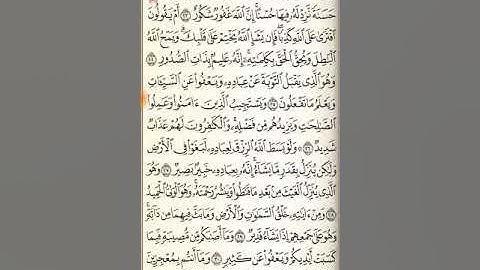 حَسَنَةً نَّزِدْ لَهُۥ فِيهَا حُسْنًا إِنَّ ٱللَّهَ غَفُورٌ شَكُورٌ ٢٣ أَمْ يَقُولُونَ
ٱفْتَرَىٰ عَلَى ٱللَّهِ كَذِبًا فَإِن يَشَإِ ٱللَّهُ يَخْتِمْ عَلَىٰ قَلْبِكَ وَيَمْحُ ٱللَّهُ
ٱلْبَٰطِلَ وَيُحِقُّ ٱلْحَقَّ بِكَلِمَٰتِهِۦٓ إِنَّهُۥ عَلِيمٌۢ بِذَاتِ ٱلصُّدُورِ ٢٤
وَهُوَ ٱلَّذِى يَقْبَلُ ٱلتَّوْبَةَ عَنْ عِبَادِهِۦ وَيَعْفُوا۟ عَنِ ٱلسَّيِّـَٔاتِ
وَيَعْلَمُ مَا تَفْعَلُونَ ٢٥ وَيَسْتَجِيبُ ٱلَّذِينَ ءَامَنُوا۟ وَعَمِلُوا۟
ٱلصَّٰلِحَٰتِ وَيَزِيدُهُم مِّن فَضْلِهِۦ وَٱلْكَٰفِرُونَ لَهُمْ عَذَابٌ
شَدِيدٌ ٢٦ وَلَوْ بَسَطَ ٱللَّهُ ٱلرِّزْقَ لِعِبَادِهِۦ لَبَغَوْا۟ فِى ٱلْأَرْضِ
وَلَٰكِن يُنَزِّلُ بِقَدَرٍ مَّا يَشَآءُ إِنَّهُۥ بِعِبَادِهِۦ خَبِيرٌۢ بَصِيرٌ ٢٧ وَهُوَ
ٱلَّذِى يُنَزِّلُ ٱلْغَيْثَ مِنۢ بَعْدِ مَا قَنَطُوا۟ وَيَنشُرُ رَحْمَتَهُۥ وَهُوَ ٱلْوَلِىُّ ٱلْحَمِيدُ
٢٨ وَمِنْ ءَايَٰتِهِۦ خَلْقُ ٱلسَّمَٰوَٰتِ وَٱلْأَرْضِ وَمَا بَثَّ فِيهِمَا مِن دَآبَّةٍ
وَهُوَ عَلَىٰ جَمْعِهِمْ إِذَا يَشَآءُ قَدِيرٌ ٢٩ وَمَآ أَصَٰبَكُم مِّن مُّصِيبَةٍ فَبِمَا
كَسَبَتْ أَيْدِيكُمْ وَيَعْفُوا۟ عَن كَثِيرٍ ٣٠ وَمَآ أَنتُم بِمُعْجِزِينَ